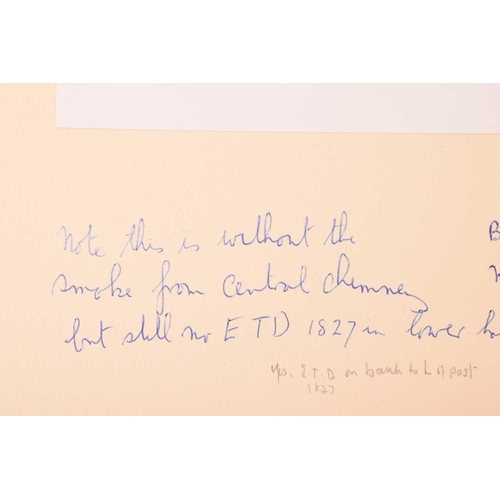 Note this is without the
smoke from central chemney
but still no E TD 1827 in lower
B
Yes. E.T.D. on bank to L of post
1827